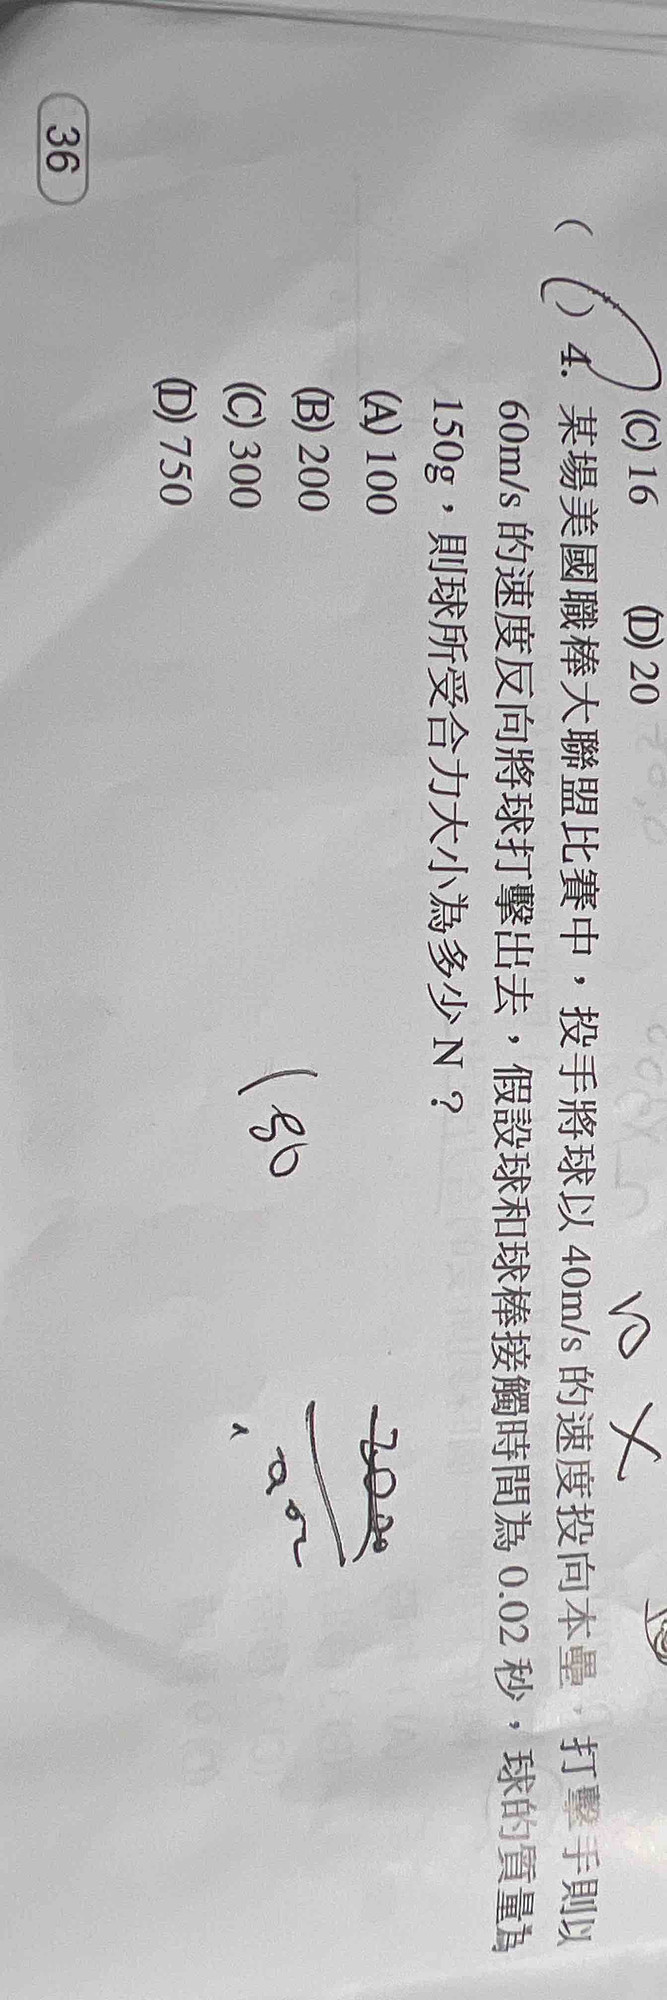 (C) 16 (D) 20
( ) 4. 某場美國職棒大聯盟比賽中，投手將球以 40m/s 的速度投向本壘，打擊手則以
60m/s 的速度反向將球打擊出去，假設球和球棒接觸時間為 0.02 秒，球的質量為
150g，則球所受合力大小為多少 N？
(A) 100
(B) 200
(C) 300
(D) 750
36